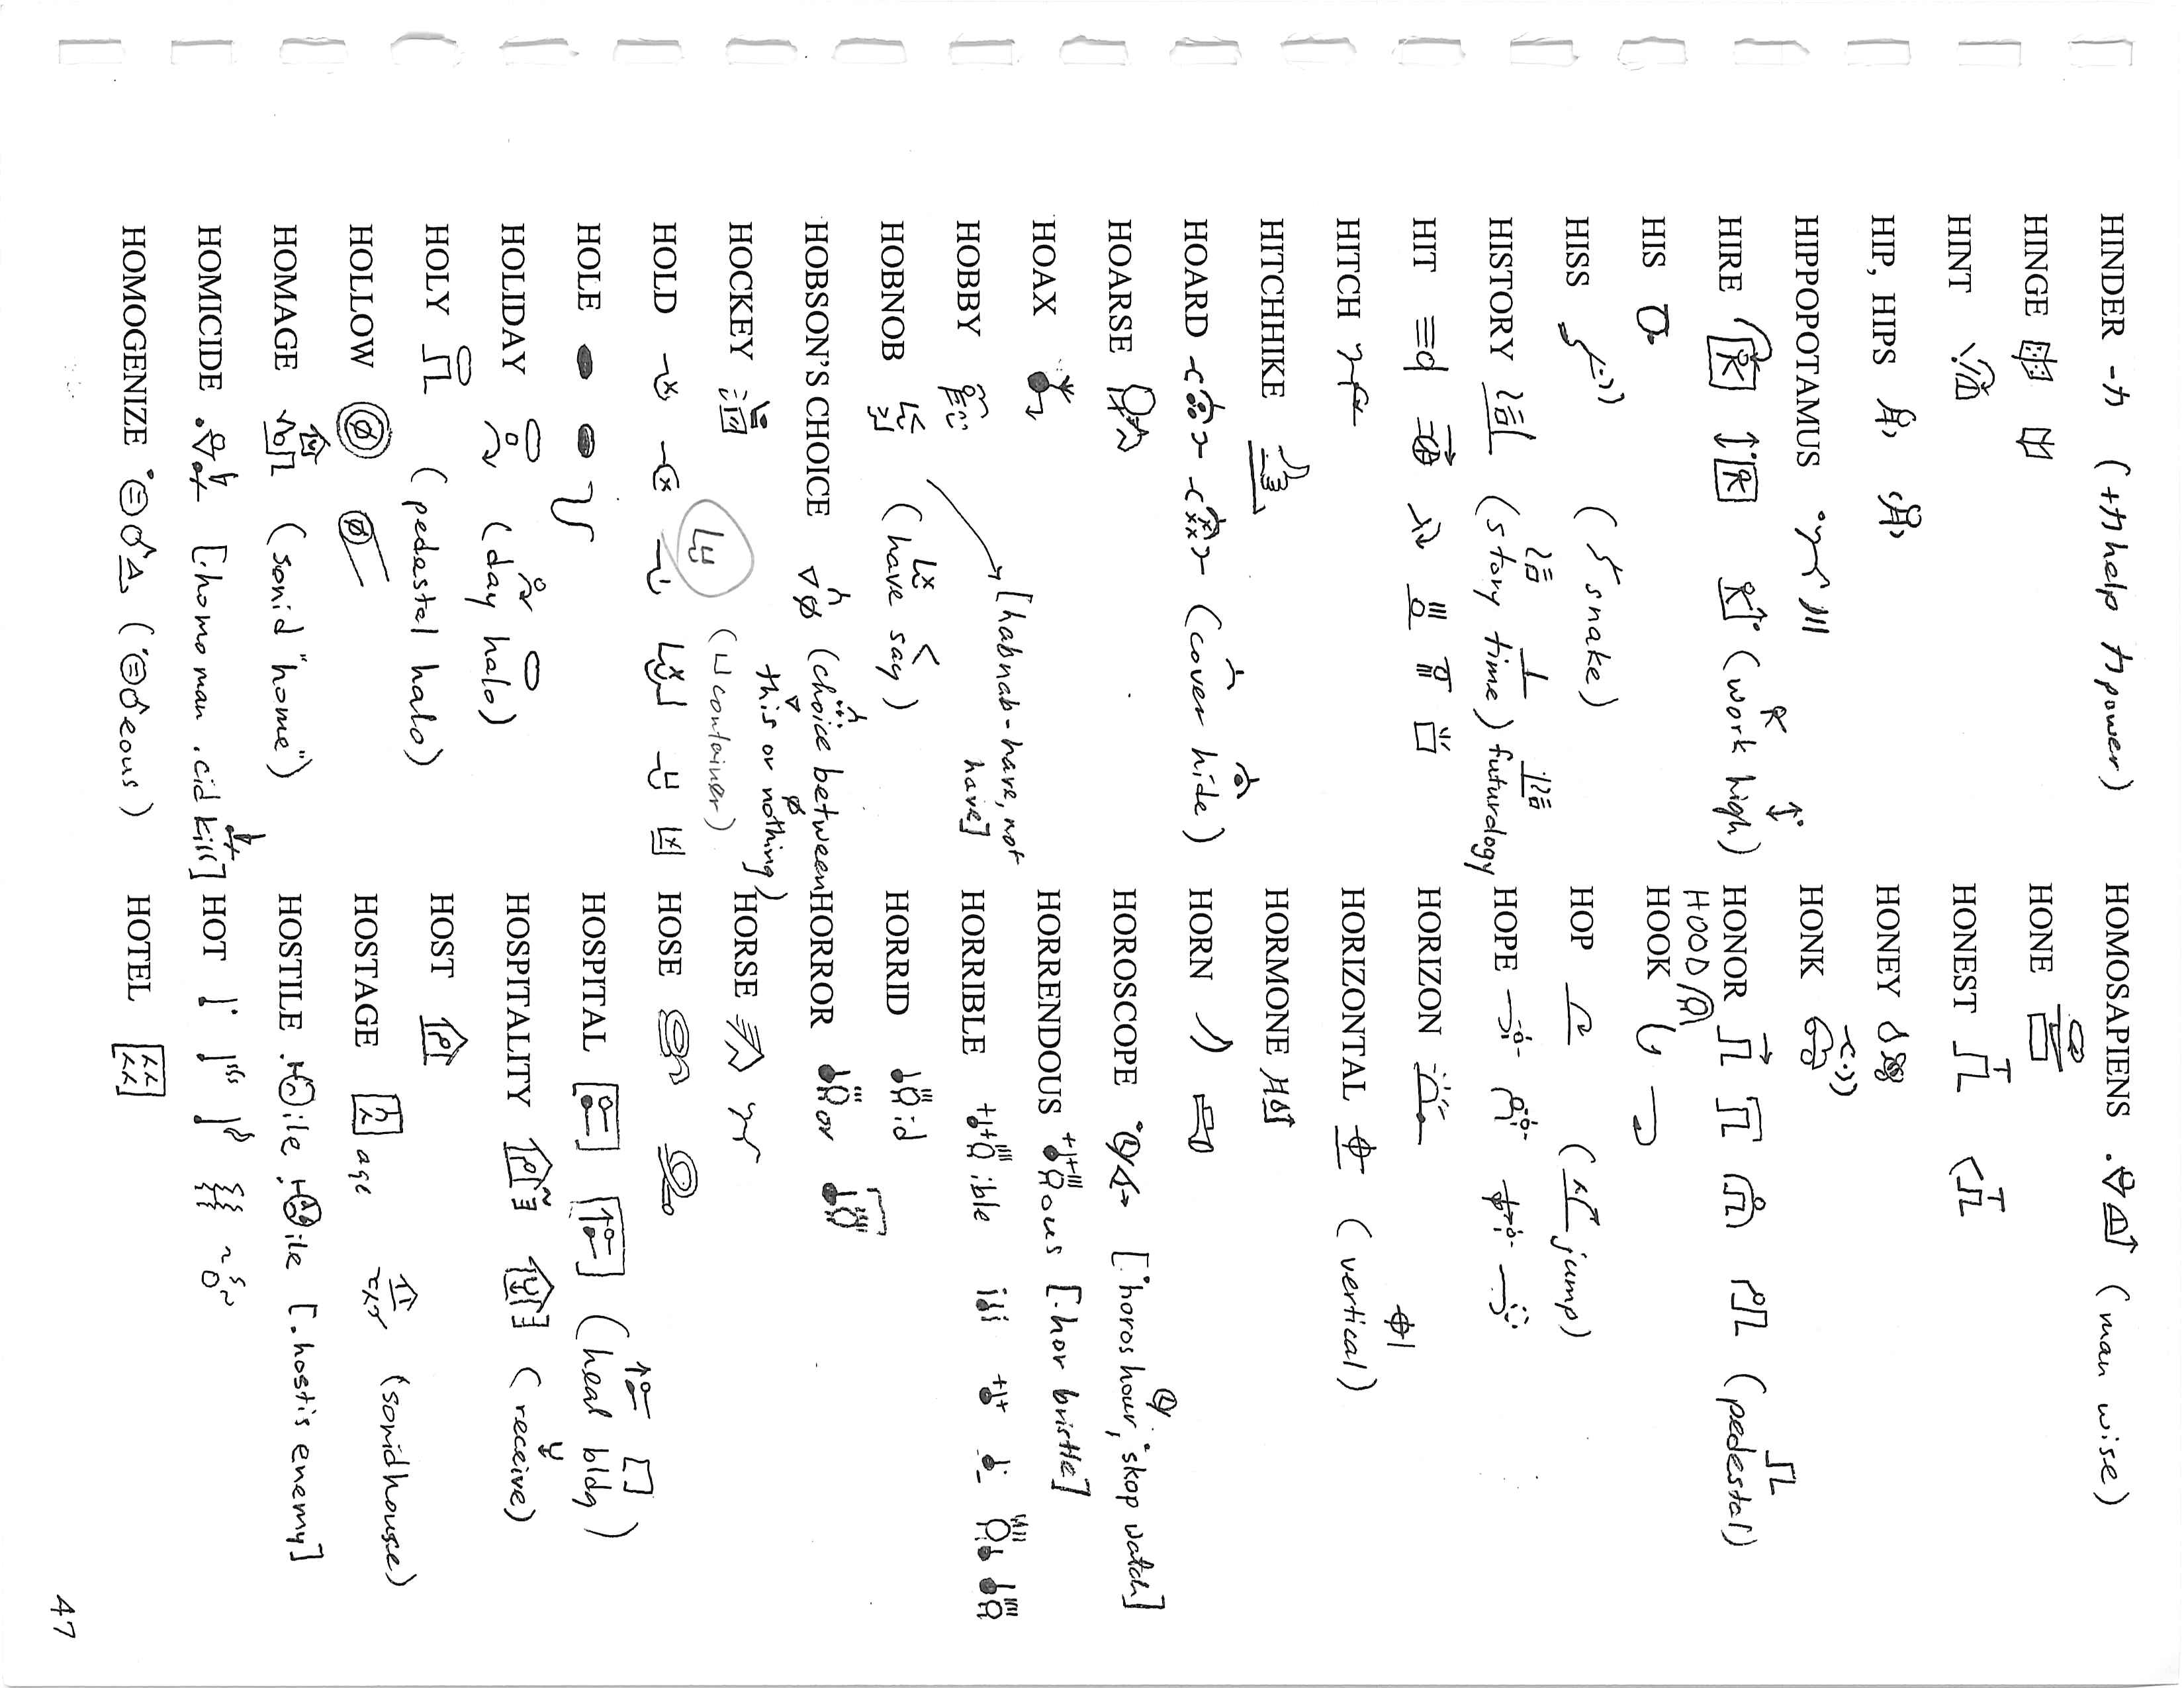 HINDER (+ help power)
HINGE
HINT
HIP, HIPS
HIPPOPOTAMUS
HIRE (work high)
HIS
HISS (snake)
HISTORY (story time) futurology
HIT
HITCH
HITCHHIKE
HOARD (cover hide)
HOARSE
HOAX
HOBBY
[habnab-have, not have]
HOBNOB (have say)
HOBSON'S CHOICE (choice between this or nothing)
HOCKEY
(container)
HOLD
HOLE
HOLIDAY (day halo)
HOLY (pedestal halo)
HOLLOW
HOMAGE (sonid "home")
HOMICIDE [.homo man .cid kill]
HOMOGENIZE (eous)
HOMOSAPIENS (man wise)
HONE
HONEST
HONEY
HONK
HONOR (pedestal)
HOOD
HOOK
HOP (jump)
HOPE
HORIZON
HORIZONTAL (vertical)
HORMONE
HORN
HOROSCOPE [horos hour, skop watch]
HORRENDOUS ous [.hor bristle]
HORRIBLE ible
HORRID id
HORROR or
HORSE
HOSE
HOSPITAL (heal bldg)
HOSPITALITY (receive)
HOST
HOSTAGE age (sonid house)
HOSTILE ile ile [.hostis enemy]
HOT
HOTEL
47